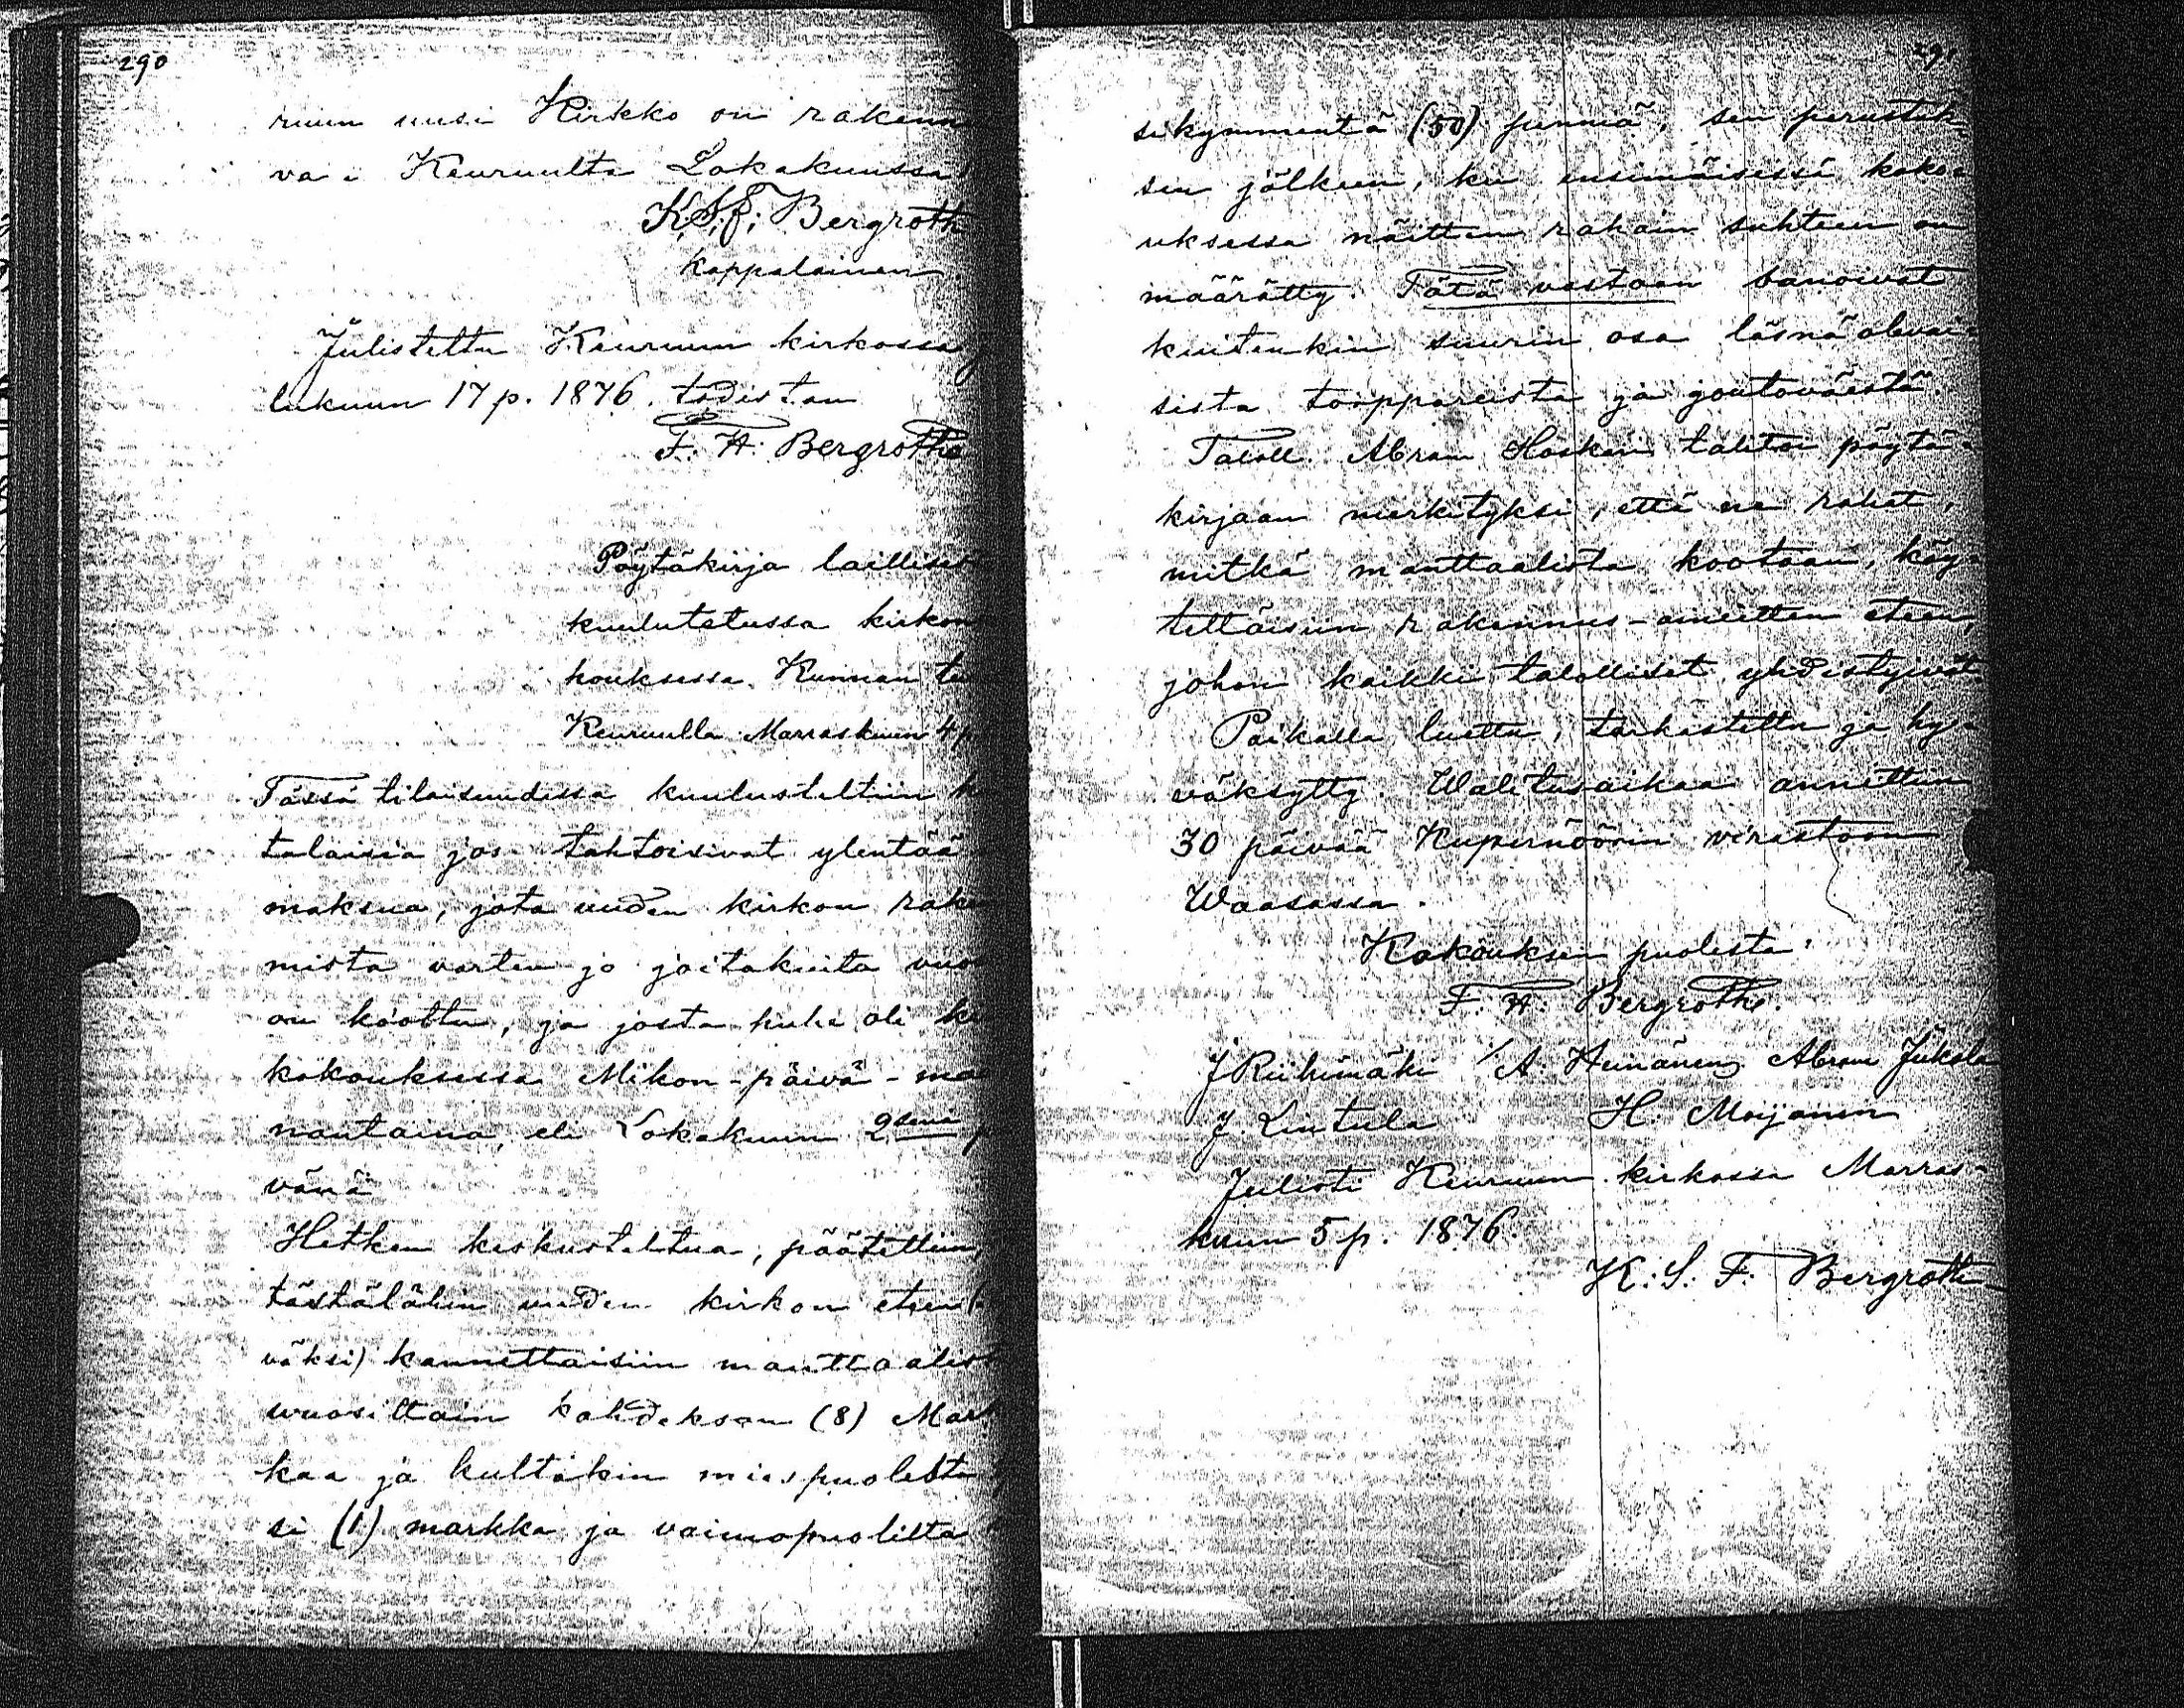 290
ruun uusi Kirkko on rakenn
va: Keuruulta Lokakuussa
K. S. F. Bergroth
kappalainen
Julistettu Keuruun kirkossa
lukuun 17 p. 1876. todistan
F. H. Bergroth
Pöytäkirja laillisest
kuulutetussa kirkon
kouksessa Kunnan tu
Keuruulla Marraskuun 4 p
Tässä tilaisuudessa kuulusteltiin
talaisia jos tahtoisivat ylentää
maksua, jota uuden kirkon rake
mista varten jo joitakuita vuo
on koottu, ja josta puhe oli
kokouksessa Mikon-päivä-ma
nantaina, eli Lokakuun 2sena p
vänä
Hetken keskusteltua, päätettiin,
tästälähin uuden kirkon eteen
väksi) kannettaisiin manttaalist
wuosittain kahdeksan (8) Mark
kaa ja kultakin miespuolesta
si (1) markka ja vaimopuolilta
291
sikymmentä (50) penniä, sen perustuk-
sen jälkeen, ku ensimäisessä koko-
uksessa näitten rahain suhteen on
määrätty. Tätä vastaan sanoivat
kuitenkin suurin osa läsnä olevai-
sista torppareista ja joutoväestä.
Taloll. Abram Hoskari tahtoi pöytä-
kirjaan merkityksi, että ne rahat,
mitkä manttaalista kootaan, käy-
tettäisiin rakennus-aineitten eteen,
johon kaikki talolliset yhdistyivät
Paikalla luettu, tarkastettu ja hy-
väksytty. Walitusaikaa annettiin
30 päivää Kupernöörin virastoon
Waasassa.
Kokouksen puolesta:
F. H. Bergroth.
J Riihimäki A. Heinänen Abram Jukola
J. Lintula H. Moijanen
Julisti Keuruun kirkossa Marras-
kuun 5 p. 1876.
K. S. F. Bergroth